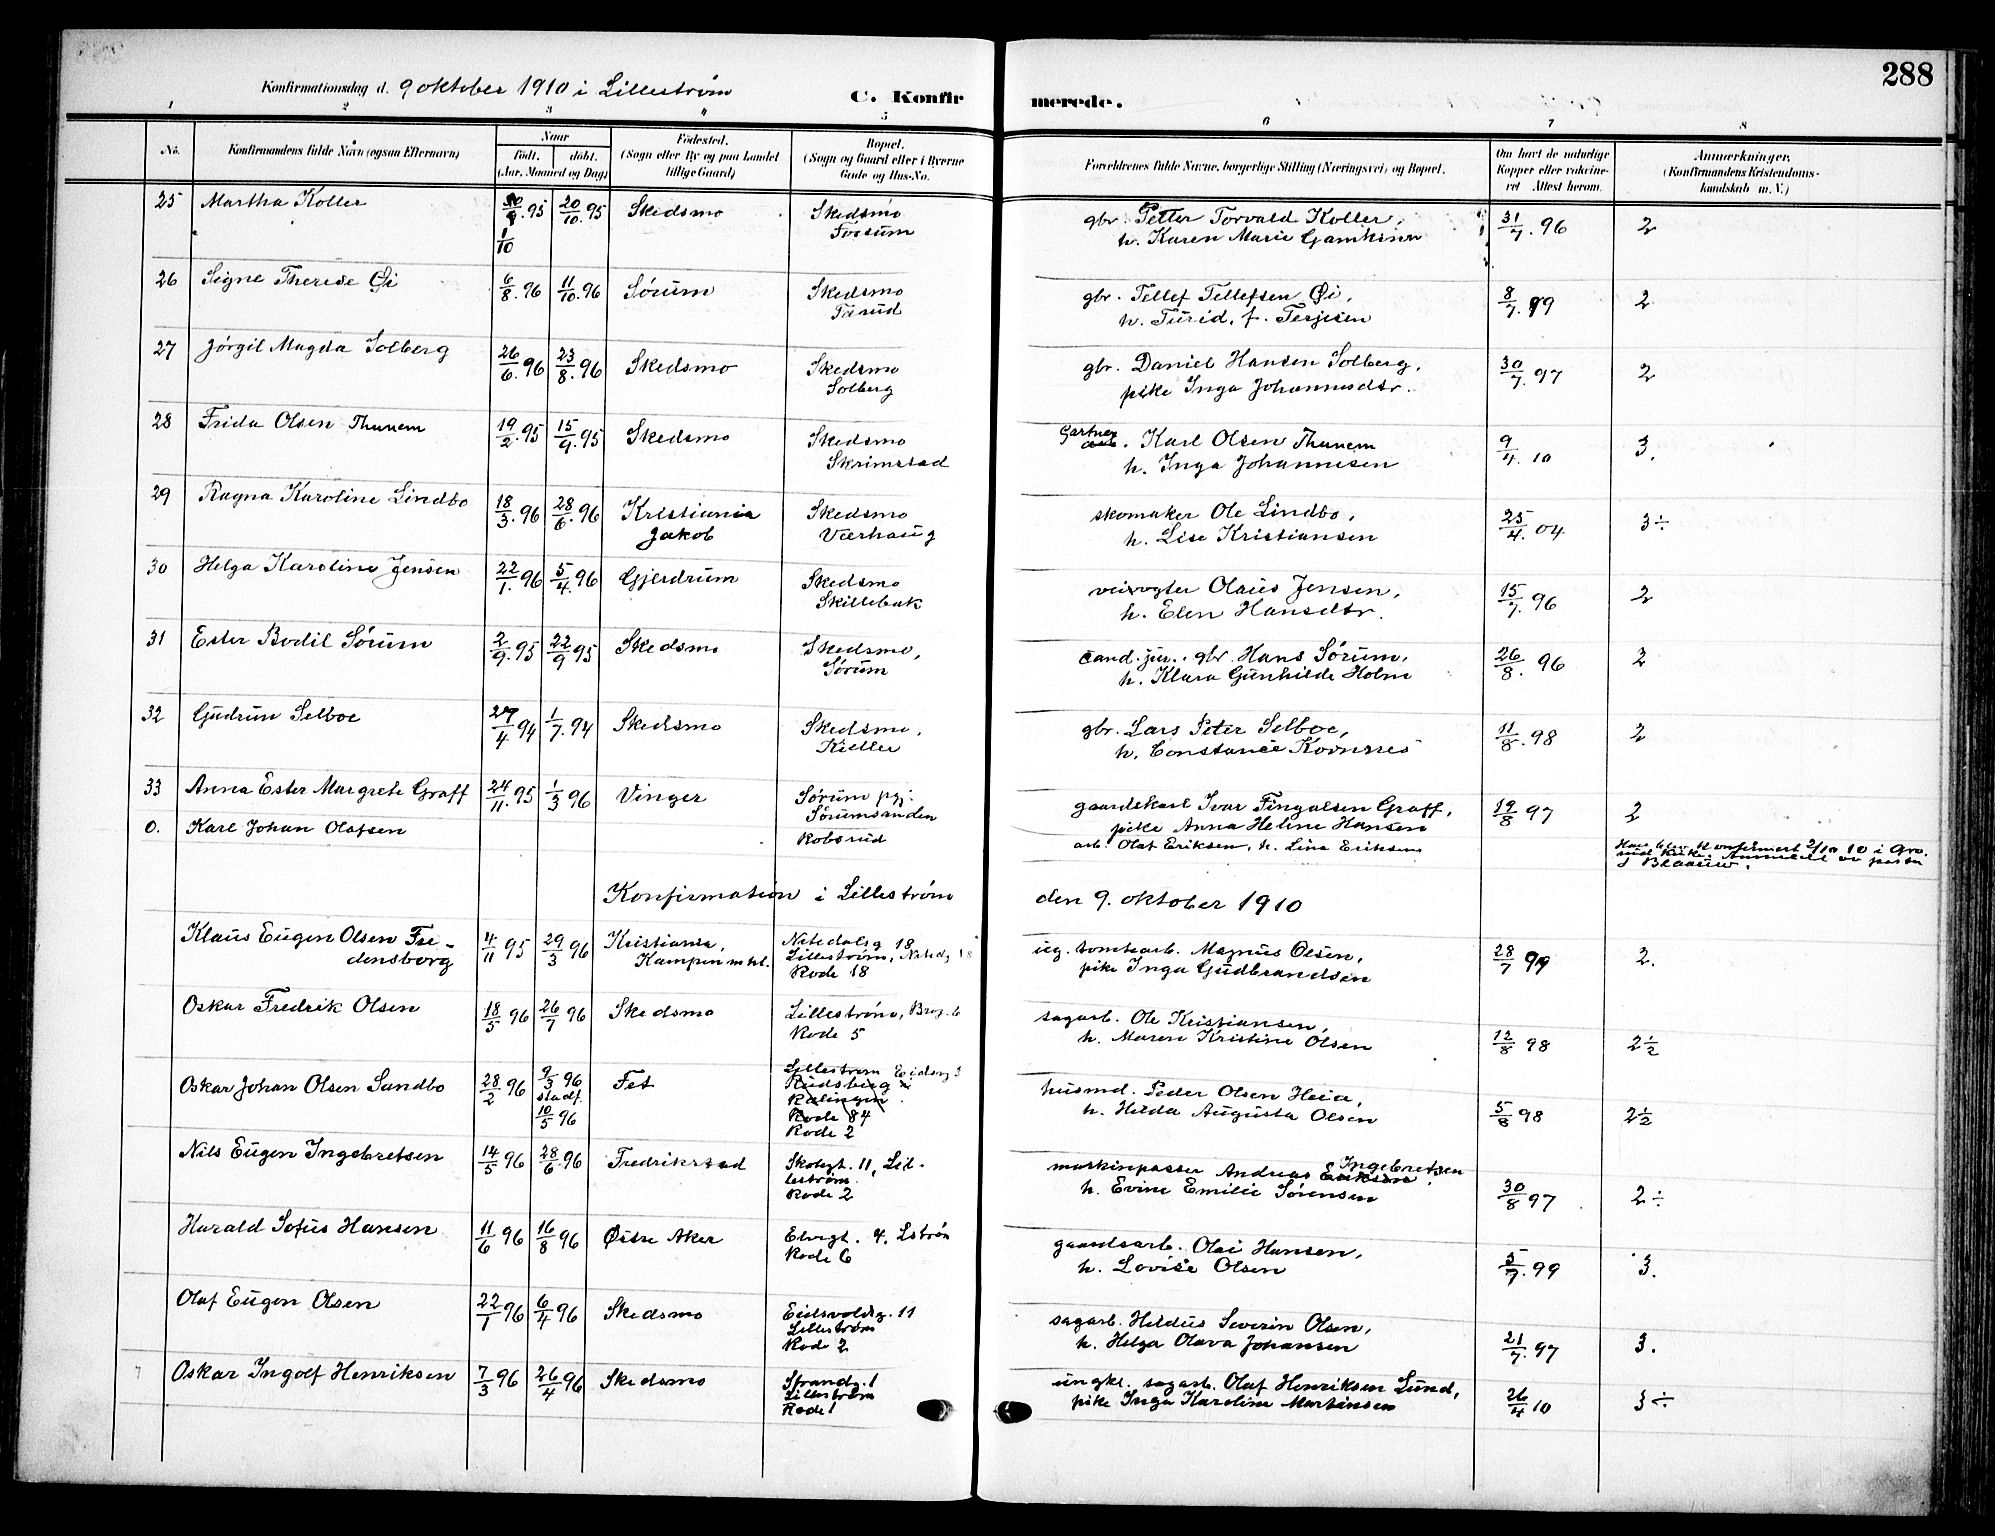 288
Konfirmationsdag d. 9 oktober 1910 i Lillestrøm
C. Konfirmerede.
1 2 3 4 5 6 7 8
No. Konfirmandens fulde Navn (ogsaa Efternavn) Naar født. døbt. (Aar, Maaned og Dag) Fødested. (Sogn eller By og paa Landet tillige Gaard) Bopæl. (Sogn og Gaard eller i Byerne Gade og Hus-No. Forældrenes fulde Navne, borgerlige Stilling (Næringsvei) og Bopæl. Om havt de naturlige Kopper eller vaccineret Attest herom. Anmerkninger, (Konfirmandens Kristendomskundskab m. V.)
25 Martha Koller 30/9.95 20/10.95 Skedsmo Skedsmo gbr. Petter Torvald Koller, 31/7.96 2
1/10 Fossum h. Karen Marie
26 Signe Therese Øi 6/8.96 11/10.96 Sørum Skedsmo gbr. Tellef Tellefsen Øi, 8/7.99 2
Tærud h. Turid, f. Terjesen
27 Jørgil Magda Solberg 26/6.96 23/8.96 Skedsmo Skedsmo gbr. Daniel Hansen Solberg, 30/7.97 2
Solberg pike Inga Johannesdtr.
28 Frida Olsen Thunem 19/2.95 15/9.95 Skedsmo Skedsmo Gartner Karl Olsen Thunem 9/4.10 3.
Skrimstad h. Inga Johannesen
29 Ragna Karoline Lindbo 18/3.96 28/6.96 Kristiania Skedsmo skomaker Ole Lindbo, 25/4.04 3÷
Jakob Værhaug h. Lise Kristiansen
30 Helga Karoline Jensen 22/1.96 5/4.96 Gjerdrum Skedsmo veivogter Olaus Jensen, 15/7.96 2
Skillebæk h. Elen Hansdtr.
31 Ester Bodil Sørum 2/9.95 22/9 95 Skedsmo Skedsmo, cand. jur., gbr. Hans Sørum, 26/8.96 2
Sørum h. Klara Gunhilde Holm
32 Gudrun Selboe 27/4 94 1/7.94 Skedsmo Skedsmo, gbr. Lars Peter Selboe, 11/8.98 2
Kjeller h. Constance
33 Anna Ester Margrete Graff 24/11.95 1/3 96 Vinger Sørum pgj. gaardskarl Ivar Fingalsen Graff, 19/8 97 2
Sørumsanden pike Anna Heline Hansen
0. Karl Johan Olafsen Robsrud arb. Olaf Eriksen, h. Lina Eriksen Han blev konfirmert 2/10 10 i Grorud kirke. Anmeldt av pastor
Konfirmation i Lillestrøm den 9. oktober 1910
Klaus Eugen Olsen Fredensborg 4/11 95 29/3 96 Kristiania, Nitedalsg 18 ug. tomtearb. Magnus Olsen, 28/7 99 2.
Kampen mht. Lillestrøm, Nitedg 18 pike Inga Gudbrandsen
Rode 18
Oskar Fredrik Olsen 18/5 96 26/7 96 Skedsmo Lillestrøm, Brog. 6 sagarb. Ole Kristiansen, 12/8 98 2½
Rode 5 h. Maren Kristine Olsen
Oskar Johan Olsen Sandbo 28/2 96 9/3 96 Fet Lillestrøm Eidsvg 3 husmd. Peder Olsen Heia, 5/8 98 2½
stadf. 10/5 96 Rudsberg i Rælingen. h. Hilda Augusta Olsen
Rode 84
Rode 2
Nils Eugen Ingebretsen 14/5 96 28/6.96 Fredrikstad Skolegt. 11, Lillestrøm. maskinpasser Andreas Eriksen Ingebretsen, 30/8 97 2÷
Rode 2 h. Evine Emilie Sørensen
Harald Sofus Hansen 11/6 96 16/8 96 Østre Aker Elvegt. 4, Lstrøm gaardsarb. Olai Hansen, 5/7.99 3.
Rode 6 h. Lovise Olsen
Olaf Eugen Olsen 22/1 96 6/4 96 Skedsmo Eidsvoldsg. 11 sagarb. Hildus Severin Olsen, 21/7.97 3.
Lillestrøm h. Helga Olava Johansen
Rode 2
7 Oskar Ingolf Henriksen 7/3 96 26/4 96 Skedsmo Strandg. 1 ungkl. sagarb. Olaf Henriksen Lund, 26/4 10 3÷
Lillestrøm pike Inga Karoline Martinsen
Rode 1